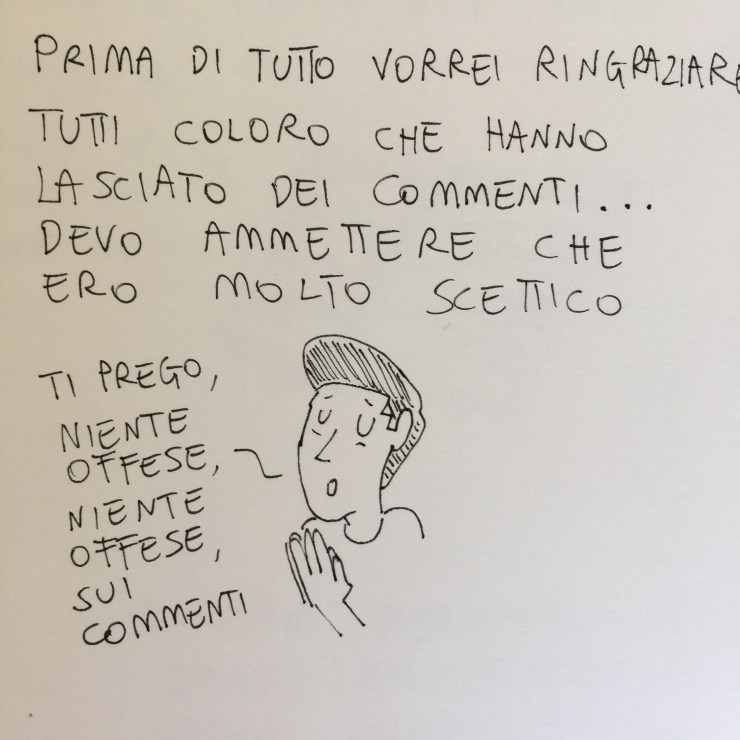 PRIMA DI TUTTO VORREI RINGRAZIARE
TUTTI COLORO CHE HANNO
LASCIATO DEI COMMENTI...
DEVO AMMETTERE CHE
ERO MOLTO SCETTICO
TI PREGO,
NIENTE
OFFESE,
NIENTE
OFFESE,
SUI
COMMENTI